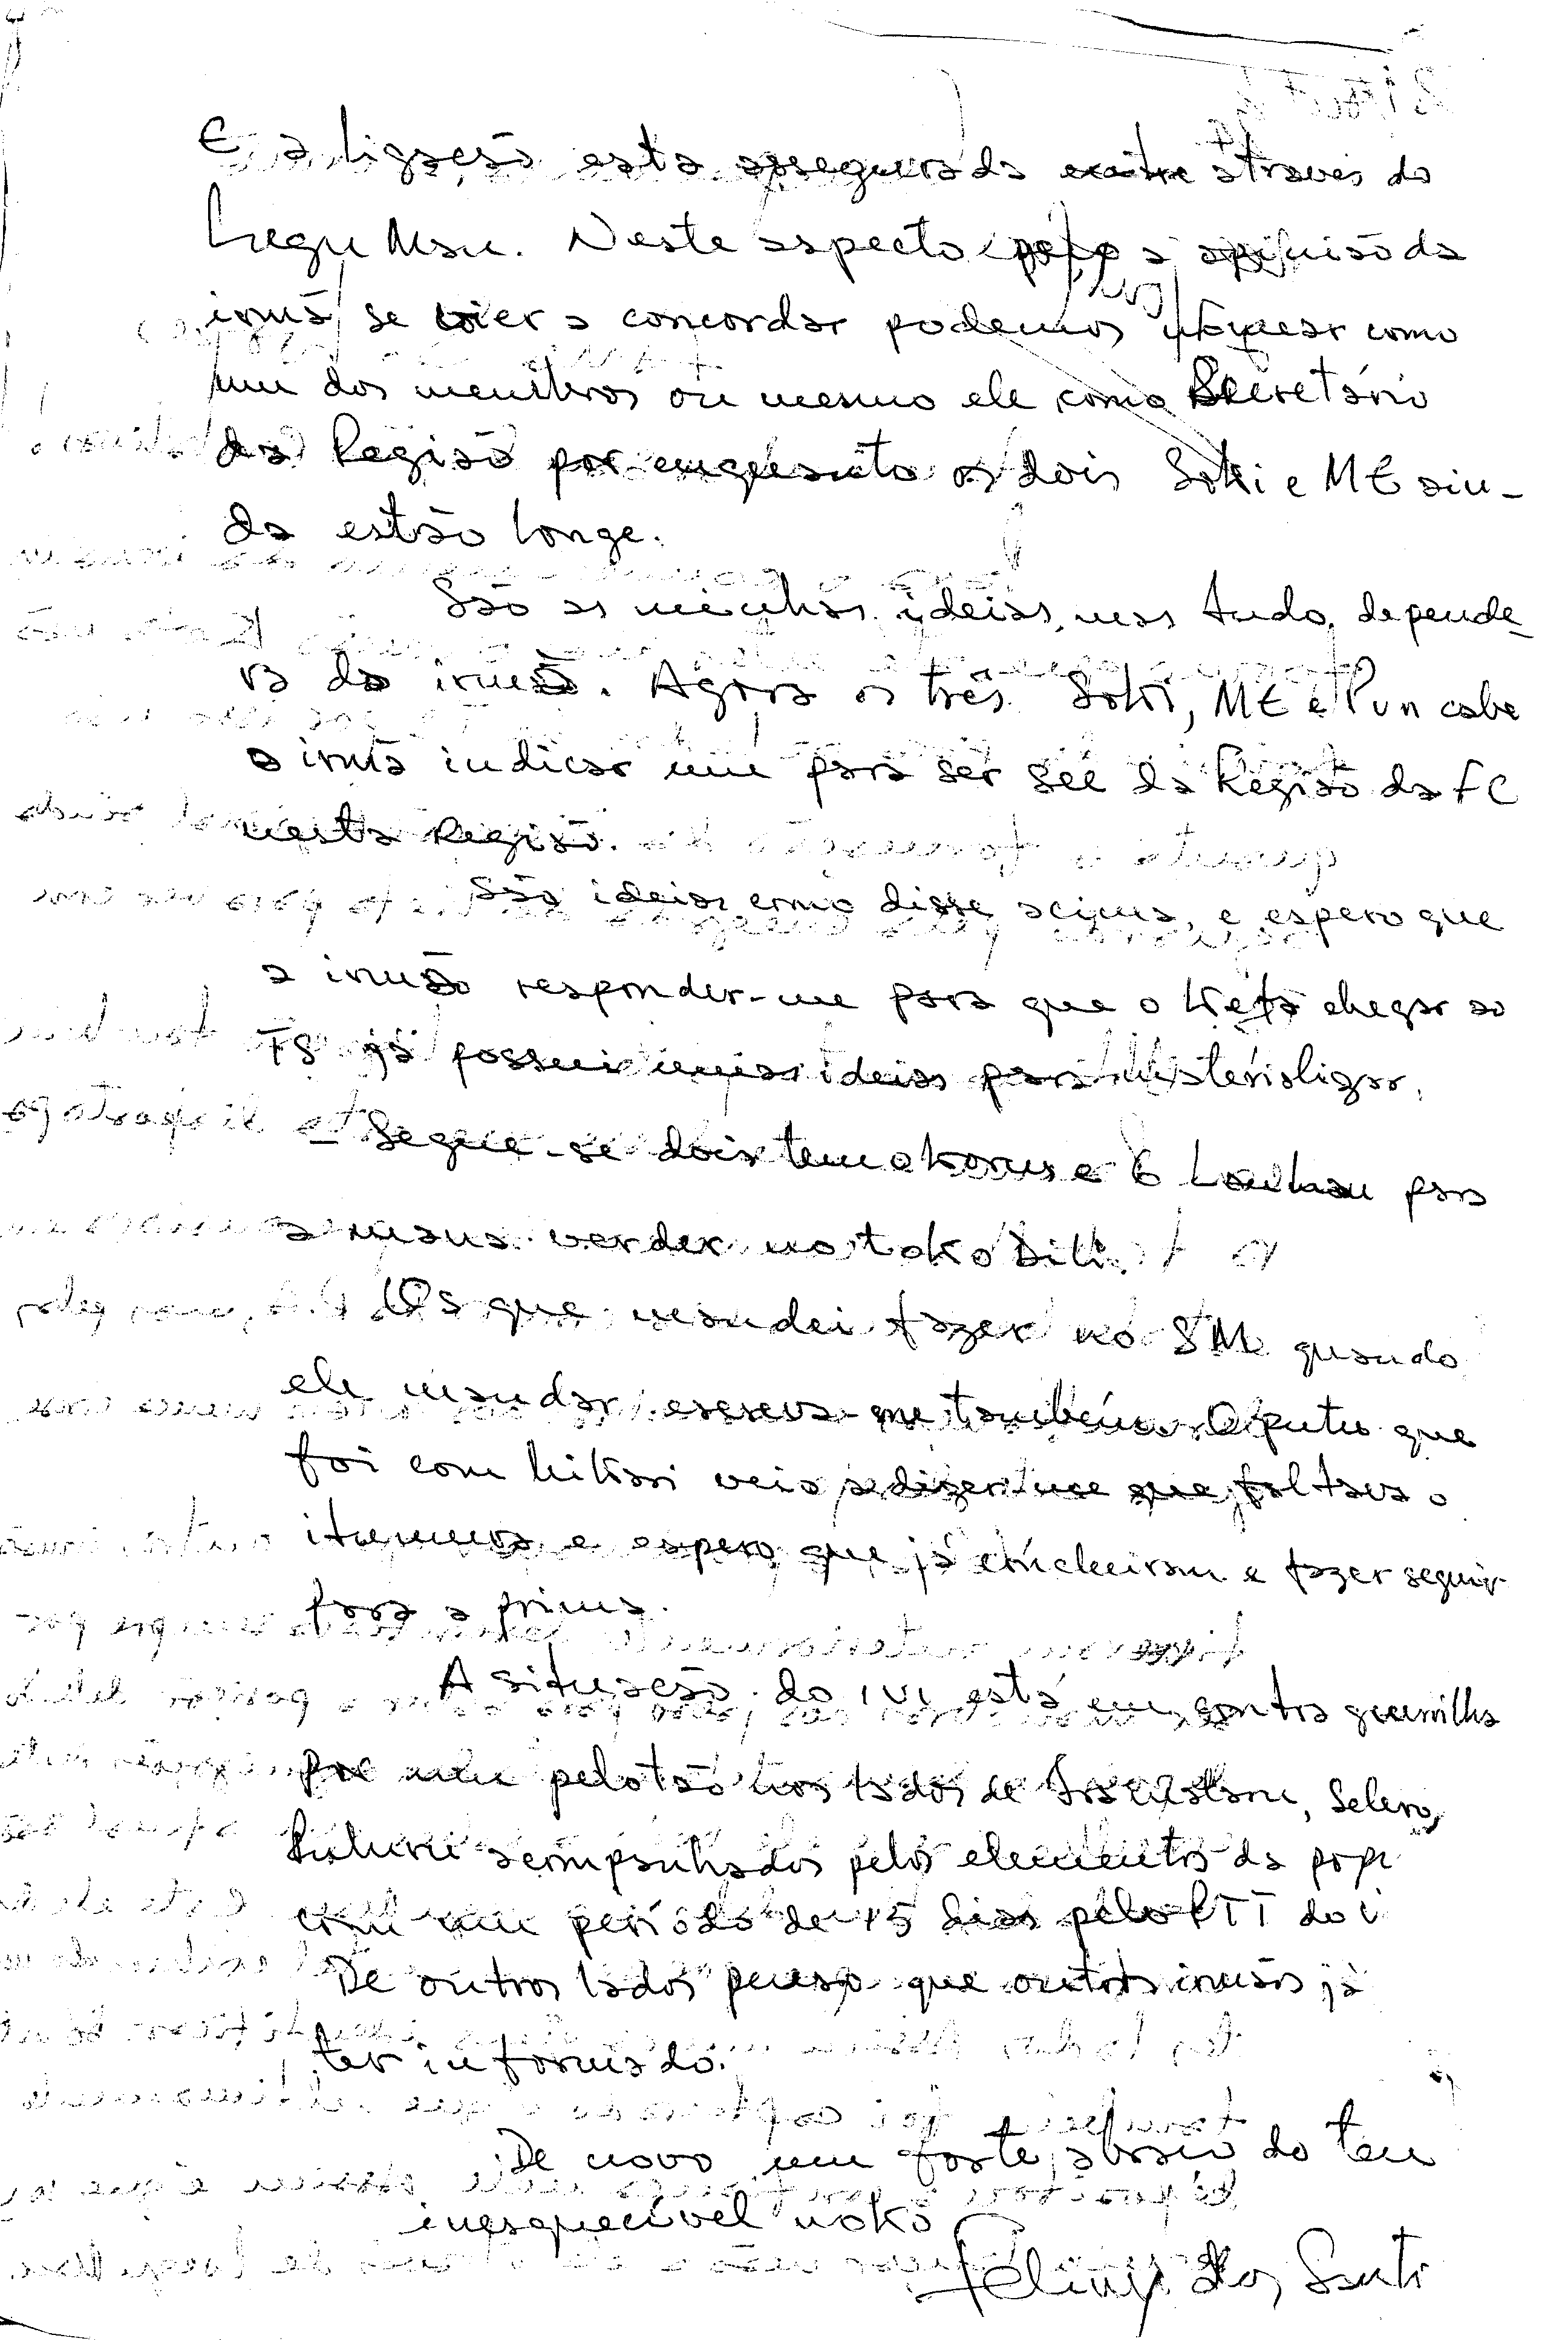 E a ligação esta assegurada através do
Legu Mau. Neste aspecto peço a opinião da
irmã, se vier a concordar podemos como
um dos membros ou mesmo ele como Secretário
da Região por enquanto os dois Soki e ME ain-
da estão longe.
São as minhas ideias, mas tudo depende-
ra da irmã. Agora os três Soki, ME e Pun cabe
a irmã indicar um para ser Sec da Região da FC
nesta Região.
São ideias como disse acima, e espero que
a irmão responder-me para que o Keta chegar ao
FS já possui umas ideias para materializar.
Segue-se dois tem e 6 para
a mana vender no toko Dili.
Os que mandei fazer no SM quando
ele mandar, escreva-me também. O putu que
foi com veio a dizer-me que faltava o
e espero que já e fazer seguir
para a prima.
A situação do está em contra guerrilha
por um pelotão nos lados de
acompanhados pelos elementos da pop
com um período de 15 dias pelo do
De outros lados penso que outros irmãos já
ter informado.
De novo um forte abraço do teu
inesquecível